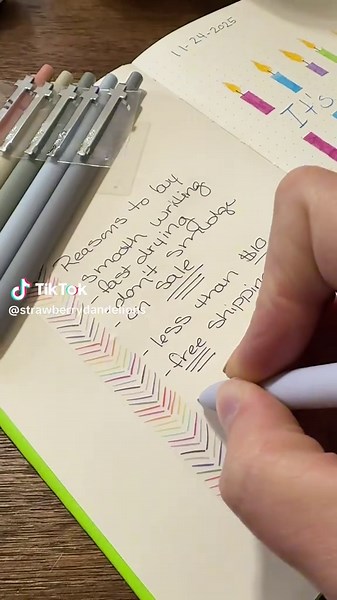 11-24-2025
It's
Reasons to buy
- smooth writing
- fast drying
- don't smudge
- on sale
- less than $10
- free shipping
TikTok
@strawberrydandelions